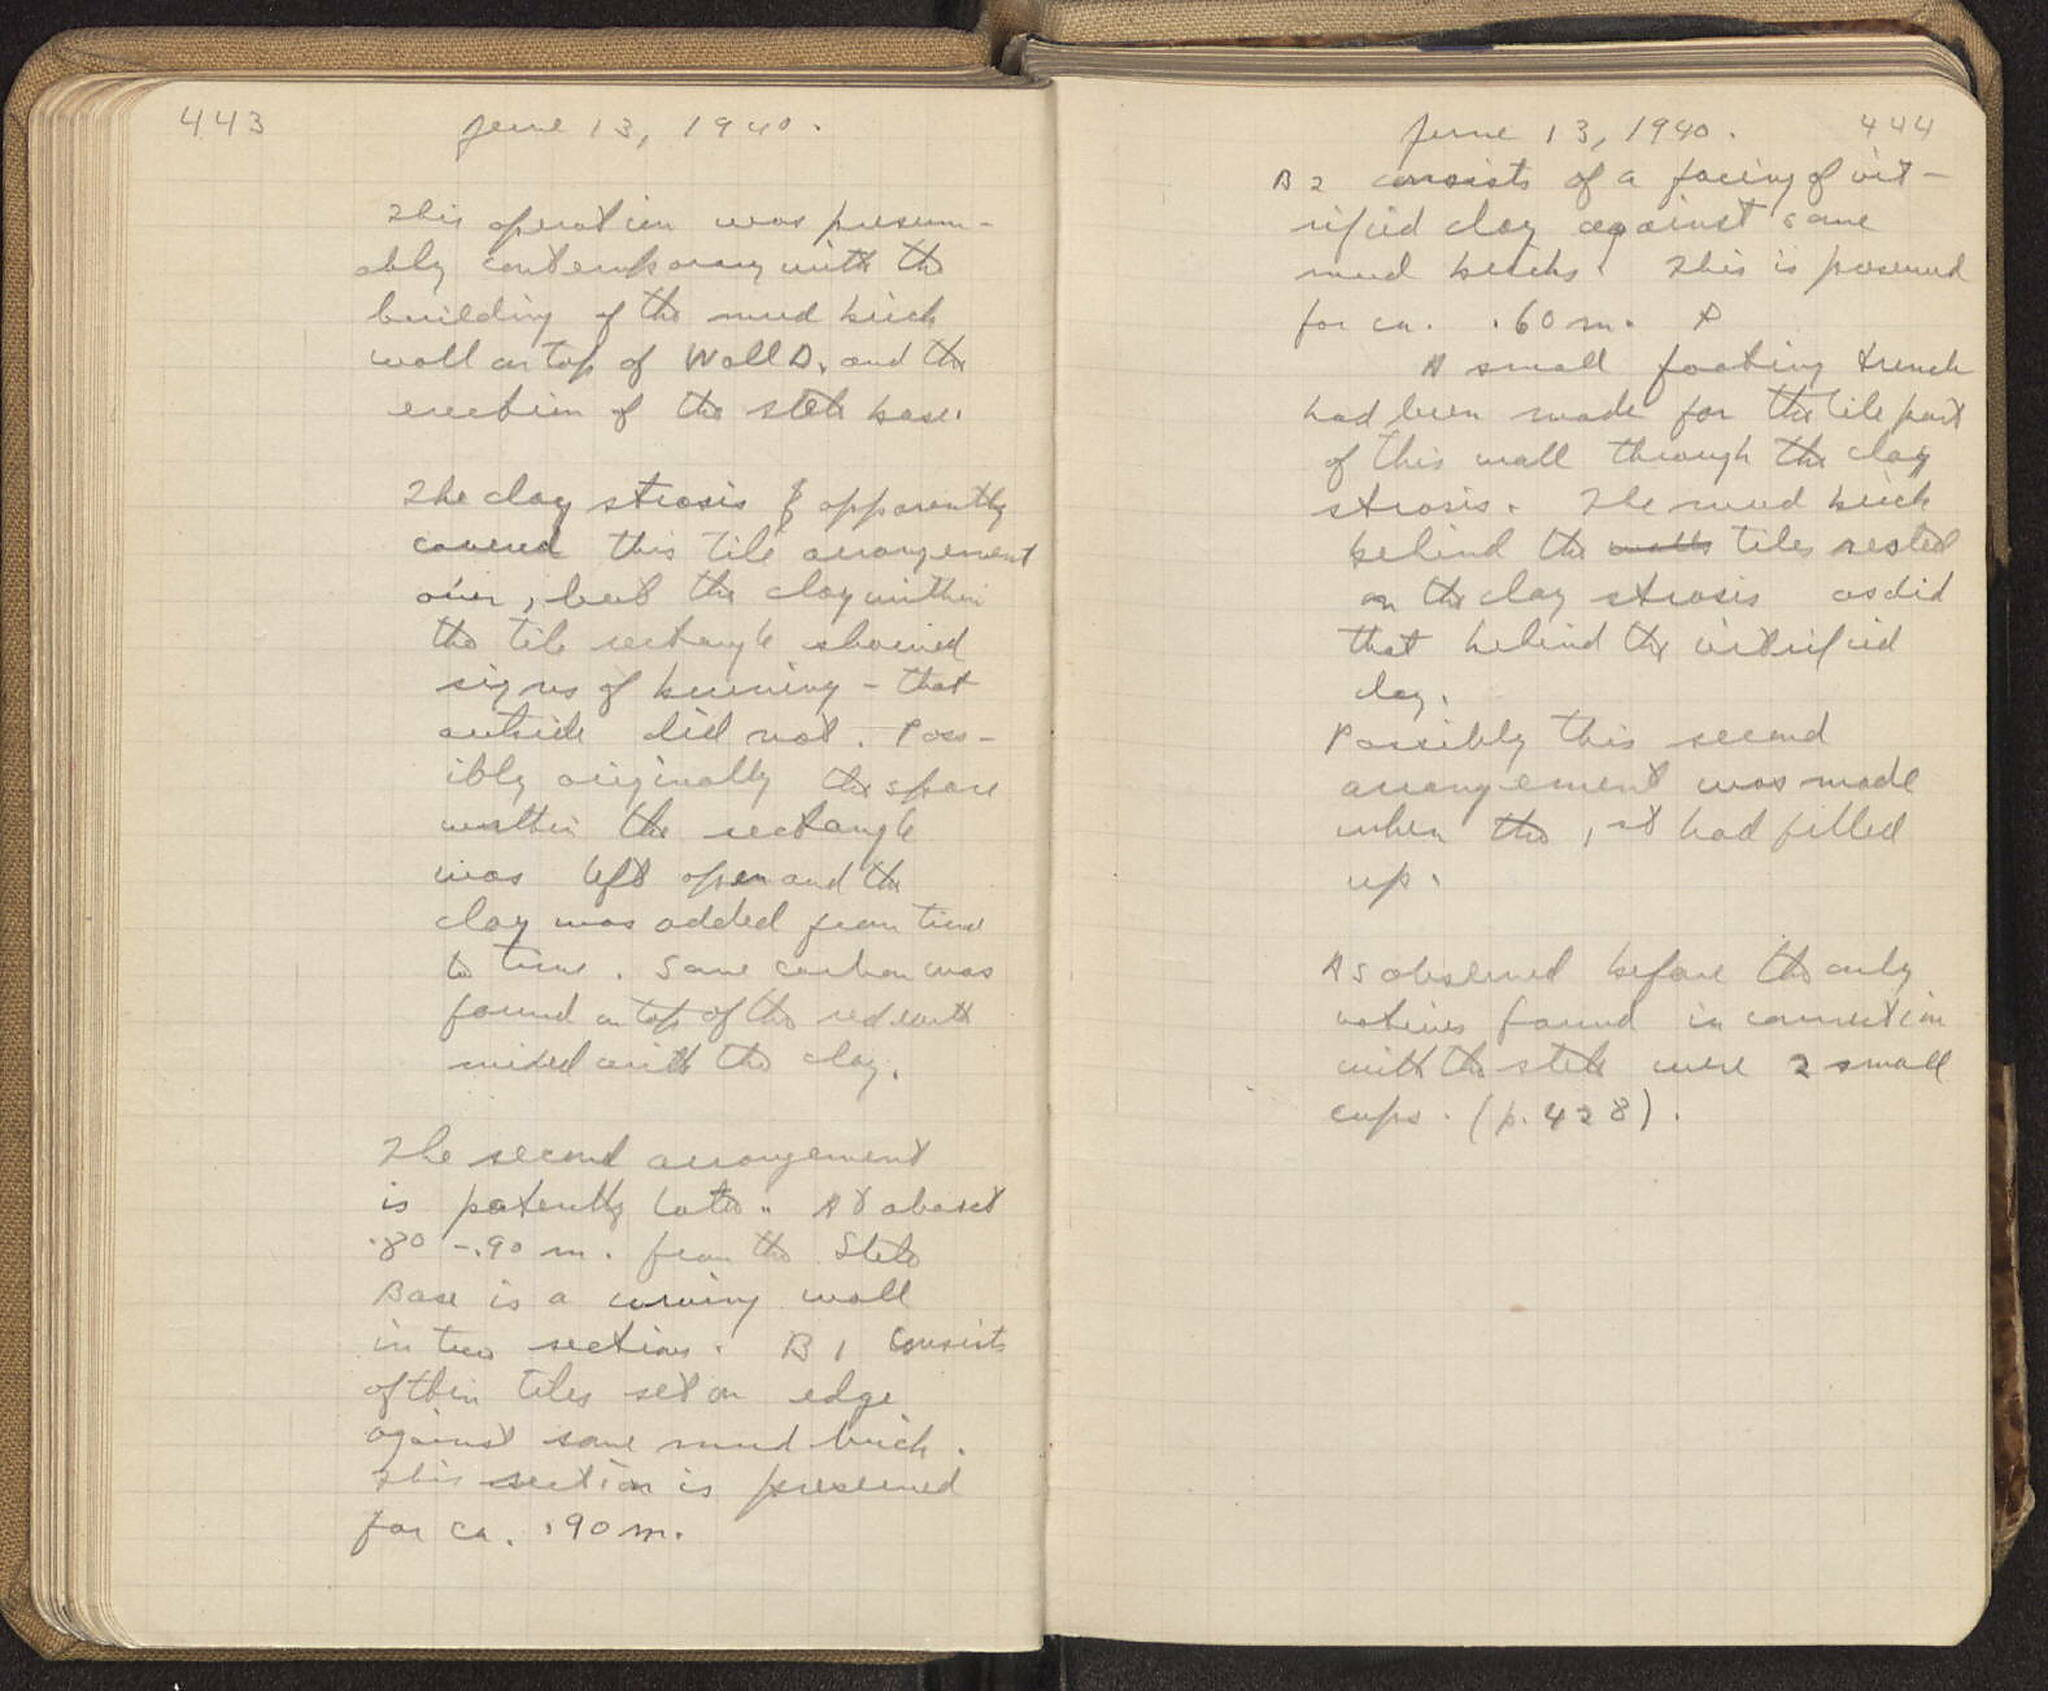 443 June 13, 1940.
This operation was presum-
ably contemporary with the
building of the mud brick
wall on top of Wall D, and the
erection of the stele base.
The clay strosis & apparently
covered this tile arrangement
over, but the clay within
the tile rectangle showed
signs of burning - that
outside did not. Poss-
ibly originally the space
within the rectangle
was left open and the
clay was added from time
to time. Some carbon was
found on top of the red earth
mixed with the clay.
The second arrangement
is patently later. At about
.80 -.90 m. from the Stele
Base is a curving wall
in two sections. B 1 consists
of thin tiles set on edge
against some mud brick.
This section is preserved
for ca. .90 m.
June 13, 1940. 444
B 2 consists of a facing of vit-
rified clay against some
mud bricks. This is preserved
for ca. .60 m. A
A small footing trench
had been made for the tile part
of this wall through the clay
strosis. The mud brick
behind the walls tiles rested
on the clay strosis as did
that behind the vitrified
clay.
Possibly this second
arrangement was made
when the 1st had filled
up.
As observed before the only
votives found in connection
with the stele were 2 small
cups. (p. 428).